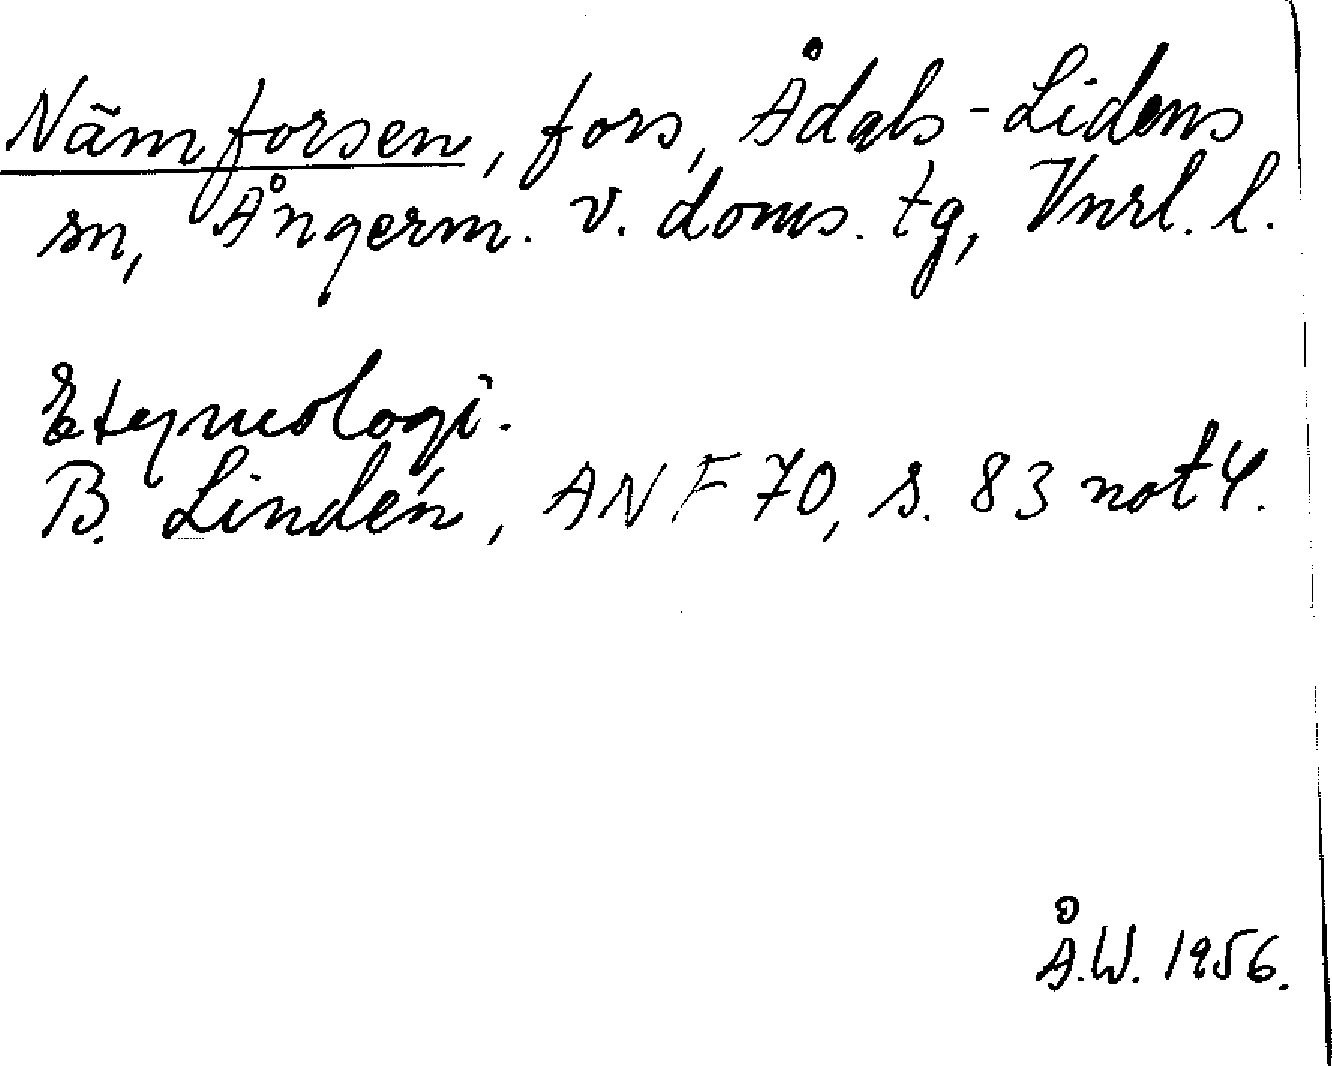 Nämforsen, fors, Ådals-Lidens
sn, Ångerm. v. doms. tg, Vnrl. l.
Etymologi.
B. Lindén, ANF 70, s. 83 not 4.
Å.W. 1956.